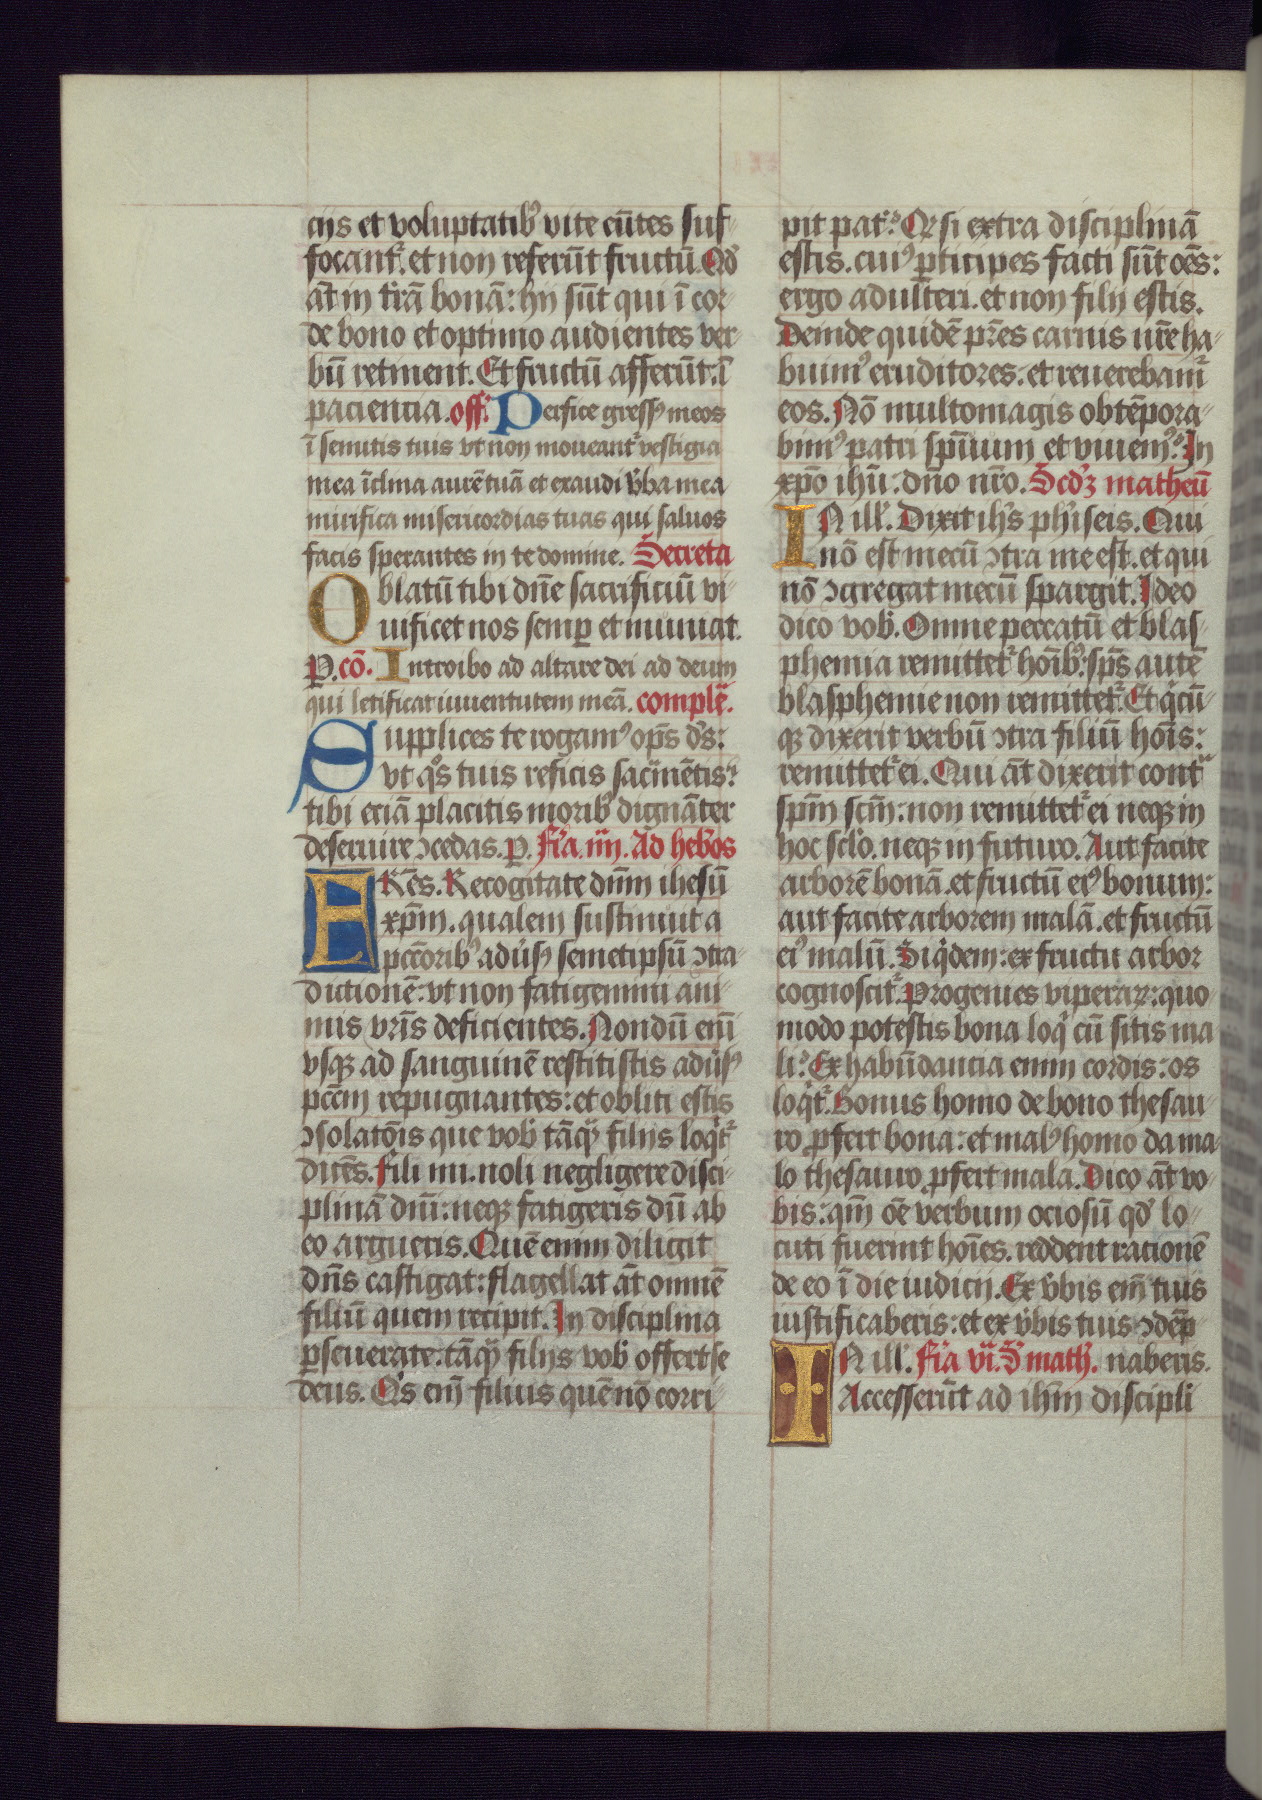 ciis et voluptatib⁹ vite eūtes suf-
focant᷑. et non referūt fructū. Qd̓
āt in tr̄ā bonā: hij sūt qui ī cor-
de bono et optimo audientes ver-
bū retinent. Et fructū afferūt. ī
paciencia. off̄. Perfice gress⁹ meos
ī semitis tuis vt non moueant᷑ vestigia
mea īclina aurē tuā et exaudi v̓ba mea
mirifica misericordias tuas qui saluos
facis sperantes in te domine. Secreta
Oblatū tibi dn̄e sacrificiū vi-
uificet nos semꝑ et muniat.
P. cō. Introibo ad altare dei ad deum
qui letificat iuuentutem meā. complē.
Supplices te rogam⁹ op̄s ds̓:
vt qs̓ tuis reficis sacr̄mētis:
tibi eciā placitis morib⁹ dignāter
deseruire ↄcedas. p. Fr̄a. iiij. Ad heb̓os
FRēs. Recogitate dn̄m ihesū
xp̄m. qualem sustinuit a
pctōrib⁹ adu̓s⁹ semetipsū ↄtra-
dictionē: vt non fatigemini ani-
mis vr̄is deficientes. Nondū em̄
vsqꝫ ad sanguinē restitistis adu̓s⁹
pctm̄ repugnantes: et obliti estis
ↄsolatōis que vob̓ tāqͣ filijs loqͥt᷑
dicēs. Fili mi. noli negligere disci-
plinā dn̄i: neqꝫ fatigeris dū ab
eo argueris. Quē enim diligit
dn̄s castigat: flagellat āt omnē
filiū quem recipit. In disciplina
ꝑseuerate. tāqͣ filijs vob̓ offert se
deus. Qͥs em̄ filius quē nō corri-
pit pat᷑: Qͦ si extra disciplinā
estis. cui⁹ ꝑticipes facti sūt oēs:
ergo adulteri. et non filij estis.
Deinde quidē pr̄es carnis nr̄e ha-
buim⁹ eruditores. et reuerebam᷑
eos. Nō multomagis obtēpora-
bim⁹ patri spirituum et viuem⁹: In
xp̄o ihū: dn̄o nr̄o. Scd̓ꝫ matheū
IN ill̓. Dixit ihs̄ ph̓iseis. Qui
nō est mecū ↄtra me est. et qui
nō ↄgregat mecū spargit. Ideo
dico vob̓. Omne peccatū et blas-
phemia remittet᷑ hoīb⁹: sp̄s autē
blasphemie non remittet᷑. Et qͥcū-
qꝫ dixerit verbū ↄtra filiū hoīs:
remittet᷑ ei. Qui āt dixerit contͣ
sp̄m sc̄m: non remittet᷑ ei neqꝫ in
hoc sclo̓. neqꝫ in futuro. Aut facite
arborē bonā. et fructū ei⁹ bonum:
aut facite arborem malā. et fructū
ei⁹ malū. Siqͥdem: ex fructu arbor
cognoscit᷑. Progenies viperaꝝ: quo-
modo potestis bona loqͥ cū sitis ma-
li: Ex habūdancia enim cordis: os
loqͥt᷑. Bonus homo de bono thesau-
ro ꝓfert bona: et mal⁹ homo da ma-
lo thesauro ꝓfert mala. Dico āt vo-
bis: qm̄ oē verbum ociosū qd̓ lo-
cuti fuerint hoīes. reddent rationē
de eo ī die iudicij. Ex v̓bis em̄ tuis
iustificaberis: et ex v̓bis tuis ↄdēp-
IN ill̓. Fr̄a vi. S̓ math̓. naberis.
Accesserūt ad ihm̄ discipli